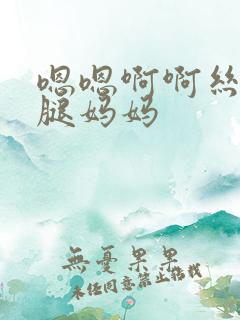 嗯嗯啊啊絲
腿妈妈
無憂果果
未经同意禁止搭讪